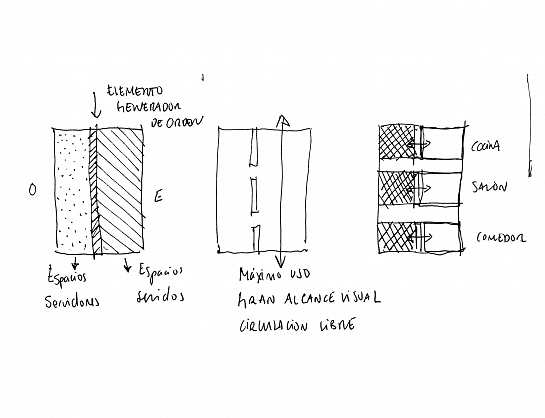 ELEMENTO
GENERADOR
DE ORDEN
O
E
Espacios
Servidores
Espacios
servidos
MÁXIMO USO
GRAN ALCANCE VISUAL
CIRCULACION LIBRE
COCINA
SALÓN
COMEDOR